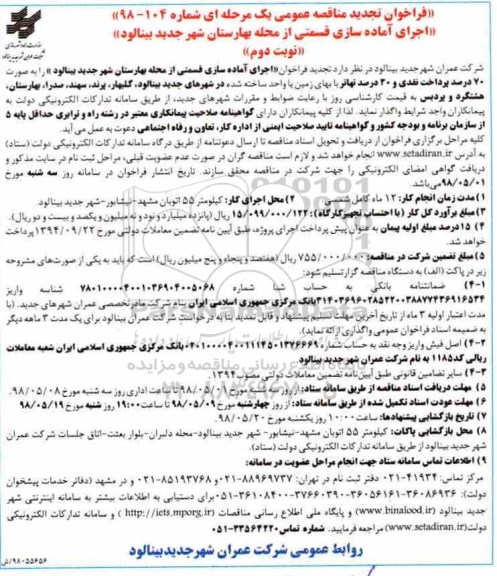 «فراخوان تجدید مناقصه عمومی یک مرحله ای شماره ۱۰۴-۹۸»
«اجرای آماده سازی قسمتی از محله بهارستان شهر جدید بینالود»
«نوبت دوم»
شرکت عمران شهر جدید بینالود در نظر دارد تجدید فراخوان «اجرای آماده سازی قسمتی از محله بهارستان شهر جدید بینالود» را به صورت
۷۰ درصد پرداخت نقدی و ۳۰ درصد تهاتر با بهای زمین یا واحد ساخته شده در شهرهای جدید بینالود، گلبهار، پرند، سهند، صدرا، بهارستان،
هشتگرد و پردیس به قیمت کارشناسی روز با رعایت ضوابط و مقررات شهرهای جدید، از طریق سامانه تدارکات الکترونیکی دولت به
پیمانکاران واجد شرایط واگذار نماید. لذا از کلیه پیمانکاران دارای گواهینامه صلاحیت پیمانکاری معتبر در رشته راه و ترابری حداقل پایه ۵
از سازمان برنامه و بودجه کشور و گواهینامه تایید صلاحیت ایمنی از اداره کار، تعاون و رفاه اجتماعی دعوت به عمل می آید.
کلیه مراحل برگزاری فراخوان از دریافت و تحویل اسناد مناقصه تا ارسال دعوتنامه از طریق درگاه سامانه تدارکات الکترونیکی دولت (ستاد)
به آدرس www.setadiran.ir انجام خواهد شد و لازم است مناقصه گران در صورت عدم عضویت قبلی، مراحل ثبت نام در سایت مذکور و
دریافت گواهی امضای الکترونیکی را جهت شرکت در مناقصه محقق سازند. تاریخ انتشار فراخوان در سامانه روز سه شنبه مورخ
۹۸/۰۵/۰۱ می باشد.
۱) مدت زمان انجام کار: ۱۲ ماه کامل شمسی ۲) محل اجرای کار: کیلومتر ۵۵ اتوبان مشهد-نیشابور-شهر جدید بینالود.
۳) مبلغ برآورد کل کار (با احتساب تجهیز کارگاه): ۱۵/۰۹۹/۰۰۰/۱۲۲ ریال (پانزده میلیارد و نود و نه میلیون و یکصد و بیست و دو ریال).
۴) ۱۵ درصد مبلغ اولیه پیمان به عنوان پیش پرداخت اجرای پروژه، طبق آیین نامه تضمین معاملات دولتی مورخ ۱۳۹۴/۰۹/۲۲ پرداخت
خواهد شد.
۵) مبلغ تضمین شرکت در مناقصه: ۷۵۵/۰۰۰/۰۰۰ ریال (هفتصد و پنجاه و پنج میلیون ریال) است که باید به یکی از صورت‌های مشروحه
زیر در پاکت (الف) به دستگاه مناقصه گزار تسلیم شود:
۱-۴) ضمانتنامه بانکی به حساب شبا شماره شناسه واریز
بانک مرکزی جمهوری اسلامی ایران بنام شرکت مادر تخصصی عمران شهرهای جدید. (با
مدت اعتبار اولیه ۳ ماه از تاریخ آخرین مهلت تسلیم پیشنهاد و قابل تمدید بنا به درخواست شرکت عمران بینالود برای یک مدت ۳ ماهه دیگر
به ضمیمه اسناد فراخوان عمومی واگذاری ارائه نماید).
۲-۴) اصل فیش واریز وجه نقد به حساب شماره بانک مرکزی جمهوری اسلامی ایران شعبه معاملات
ریالی کد ۱۱۸۵ به نام شرکت عمران شهر جدید بینالود
۳-۴) سایر تضامین قانونی طبق آیین نامه تضمین معاملات دولتی مصوب ۱۳۹۴.
۵) مهلت دریافت اسناد مناقصه از طریق سامانه ستاد: از روز مورخ ۹۸/۰۵/۰۱ ساعت اداری روز سه شنبه مورخ ۹۸/۰۵/۰۸.
۶) مهلت عودت اسناد تکمیل شده از طریق سامانه ستاد: از روز چهارشنبه مورخ ۹۸/۰۵/۰۹ تا ساعت ۱۹:۰۰ روز شنبه مورخ ۹۸/۰۵/۱۹
۷) تاریخ بازگشایی پیشنهادها: ساعت ۱۰:۰۰ روز یکشنبه مورخ ۹۸/۰۵/۲۰.
۸) محل بازگشایی پاکات: کیلومتر ۵۵ اتوبان مشهد-نیشابور- شهر جدید بینالود-محله دلبران-بلوار بعثت-اتاق جلسات شرکت عمران
شهر جدید بینالود از طریق سامانه تدارکات الکترونیکی دولت (ستاد).
۹) اطلاعات تماس سامانه ستاد جهت انجام مراحل عضویت در سامانه:
مرکز تماس: ۴۱۹۳۴-۰۲۱ دفتر ثبت نام در تهران: ۸۸۹۶۹۷۳۷-۰۲۱ و ۸۵۱۹۳۷۶۸-۰۲۱ و در مشهد (دفاتر خدمات پیشخوان
دولت): برای دستیابی به اطلاعات بیشتر به سامانه اینترنتی شهر
جدید بینالود (www.binalood.ir) و پایگاه ملی اطلاع رسانی مناقصات (http://iets.mporg.ir) و سامانه تدارکات الکترونیکی
دولت (www.setadiran.ir) مراجعه فرمایید. شماره تماس ۳۳۵۶۴۲۲۰-۰۵۱
روابط عمومی شرکت عمران شهر جدید بینالود
۹۸۰۵۵۶۵۶/ش